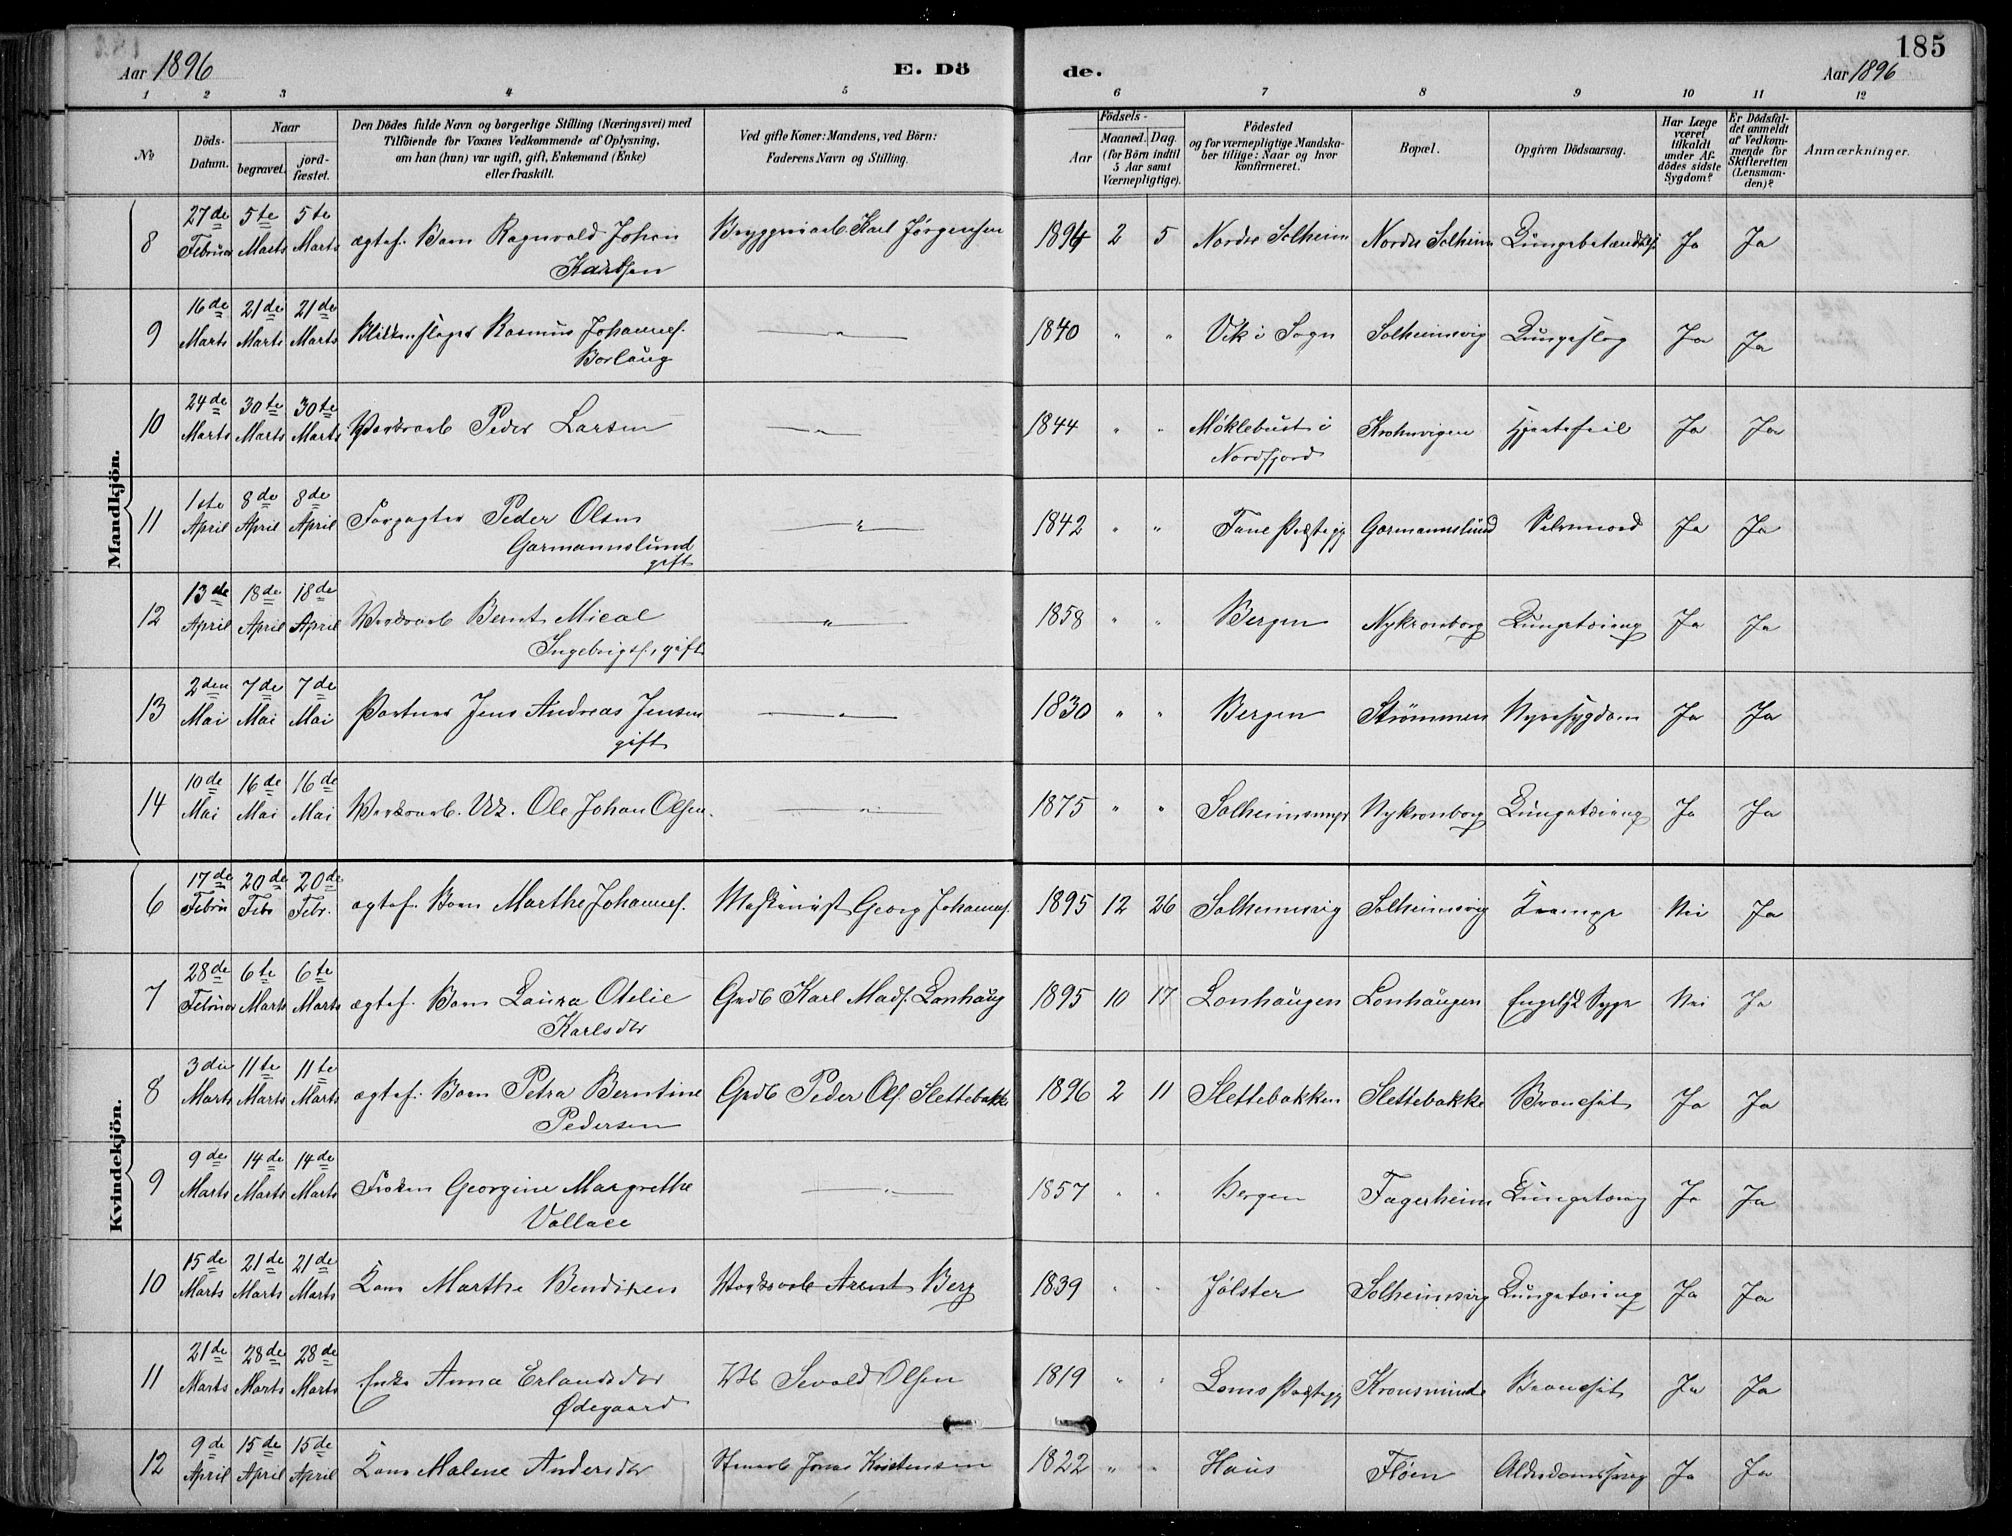 Aar 1896
E. Dö
de.
185
Aar 1896
1 2 3 4 5 6 7 8 9 10 11 12
№
Döds-Datum.
Naar
begravet.
jord-fæstet.
Den Dödes fulde Navn og borgerlige Stilling (Næringsvei) med
Tilföiende for Voxnes Vedkommende af Oplysning,
om han (hun) var ugift, gift, Enkemand (Enke)
eller fraskilt.
Ved gifte Koner: Mandens, ved Börn:
Faderens Navn og Stilling.
Födsels-
Aar
Maaned.
Dag.
(for Börn indtil
5 Aar samt
Værnepligtige).
Födested
og for værnepligtige Mandska-
ber tillige: Naar og hvor
konfirmeret.
Bopæl.
Opgiven Dödsaarsag.
Har Læge
været
tilkaldt
under Af-
dödes sidste
Sygdom?
Er Dödsfal-
det anmeldt
af Vedkom-
mende for
Skifteretten
(Lensman-
den)?
Anmærkninger.
Mandkjön.
8 27de Februar 5te Marts 5te Marts ægtef. Barn Ragnvald Johan Karlsen Bryggeriarb. Karl Jørgensen 1894 2 5 Nordre Solheim Nordre Solheim Lungebetændelse Ja Ja
9 16de Marts 21de Marts 21de Marts Blikkenslager Rasmus Johannes. Borlaug — " — 1840 " " Vik i Sogn Solheimsvig Lungeslag Ja Ja
10 24de Marts 30te Marts 30te Marts Værksarb Peder Larsen — " — 1844 " " Möklebust i Nordfjord Krohnvigen Hjertefeil Ja Ja
11 1ste April 8de April 8de April Forpagter Peder Olsen Garmannslund gift — " — 1842 " " Fane Præstegj Garmannslund Selvmord Ja Ja
12 13de April 18de April 18de April Værksarb Bernt Mical Ingebrigts., gift — " — 1858 " " Bergen Nykronborg Lungetæring Ja Ja
13 2den Mai 7de Mai 7de Mai Portner Jens Andreas Jensen gift — " — 1830 " " Bergen Strömmen Nyresygdom Ja Ja
14 10de Mai 16de Mai 16de Mai Værksarb. Ole Johan Olsen. — " — 1875 " " Nykronborg Lungetæring Ja Ja
Kvindekjön.
6 17de Febru 20de Febr 20de Febr. ægtef. Barn Marthe Johannes. Maskinist Georg Johannes. 1895 12 26 Solheimsvig Solheimsvig Krampe Nei Ja
7 28de Februar 6te Marts 6te Marts ægtef. Barn Laura Otelie Karlsdtr Grdb Karl Mads. Lonhaug 1895 10 17 Lonhaugen Lonhaugen Engelsk Syge Nei Ja
8 3die Marts 11te Marts 11te Marts ægtef. Barn Petra Berntine Pedersen Grdb Peder Ols. Slettebakke 1896 2 11 Slettebakken Slettebakke Bronchit Ja Ja
9 9de Marts 14de Marts 14de Marts Frøken Georgine Margrethe Vallace — " — 1857 " " Bergen Fagerheim Lungetæring Ja Ja
10 15de Marts 21de Marts 21de Marts Kone Marthe Bendixen Værksarb Arent Berg 1839 " " Jölster Solheimsvig Lungetæring Ja Ja
11 21de Marts 28de Marts 28de Marts Enke Anna Erlandsdtr Ødegaard Sevald Olsen 1819 " " Loms Præstegj Kronsminde Bronchit Ja Ja
12 9de April 15de April 15de April Kone Malene Andersdtr Jonas Kristensen 1822 " " Haus Flöen Alderdomssvag Ja Ja